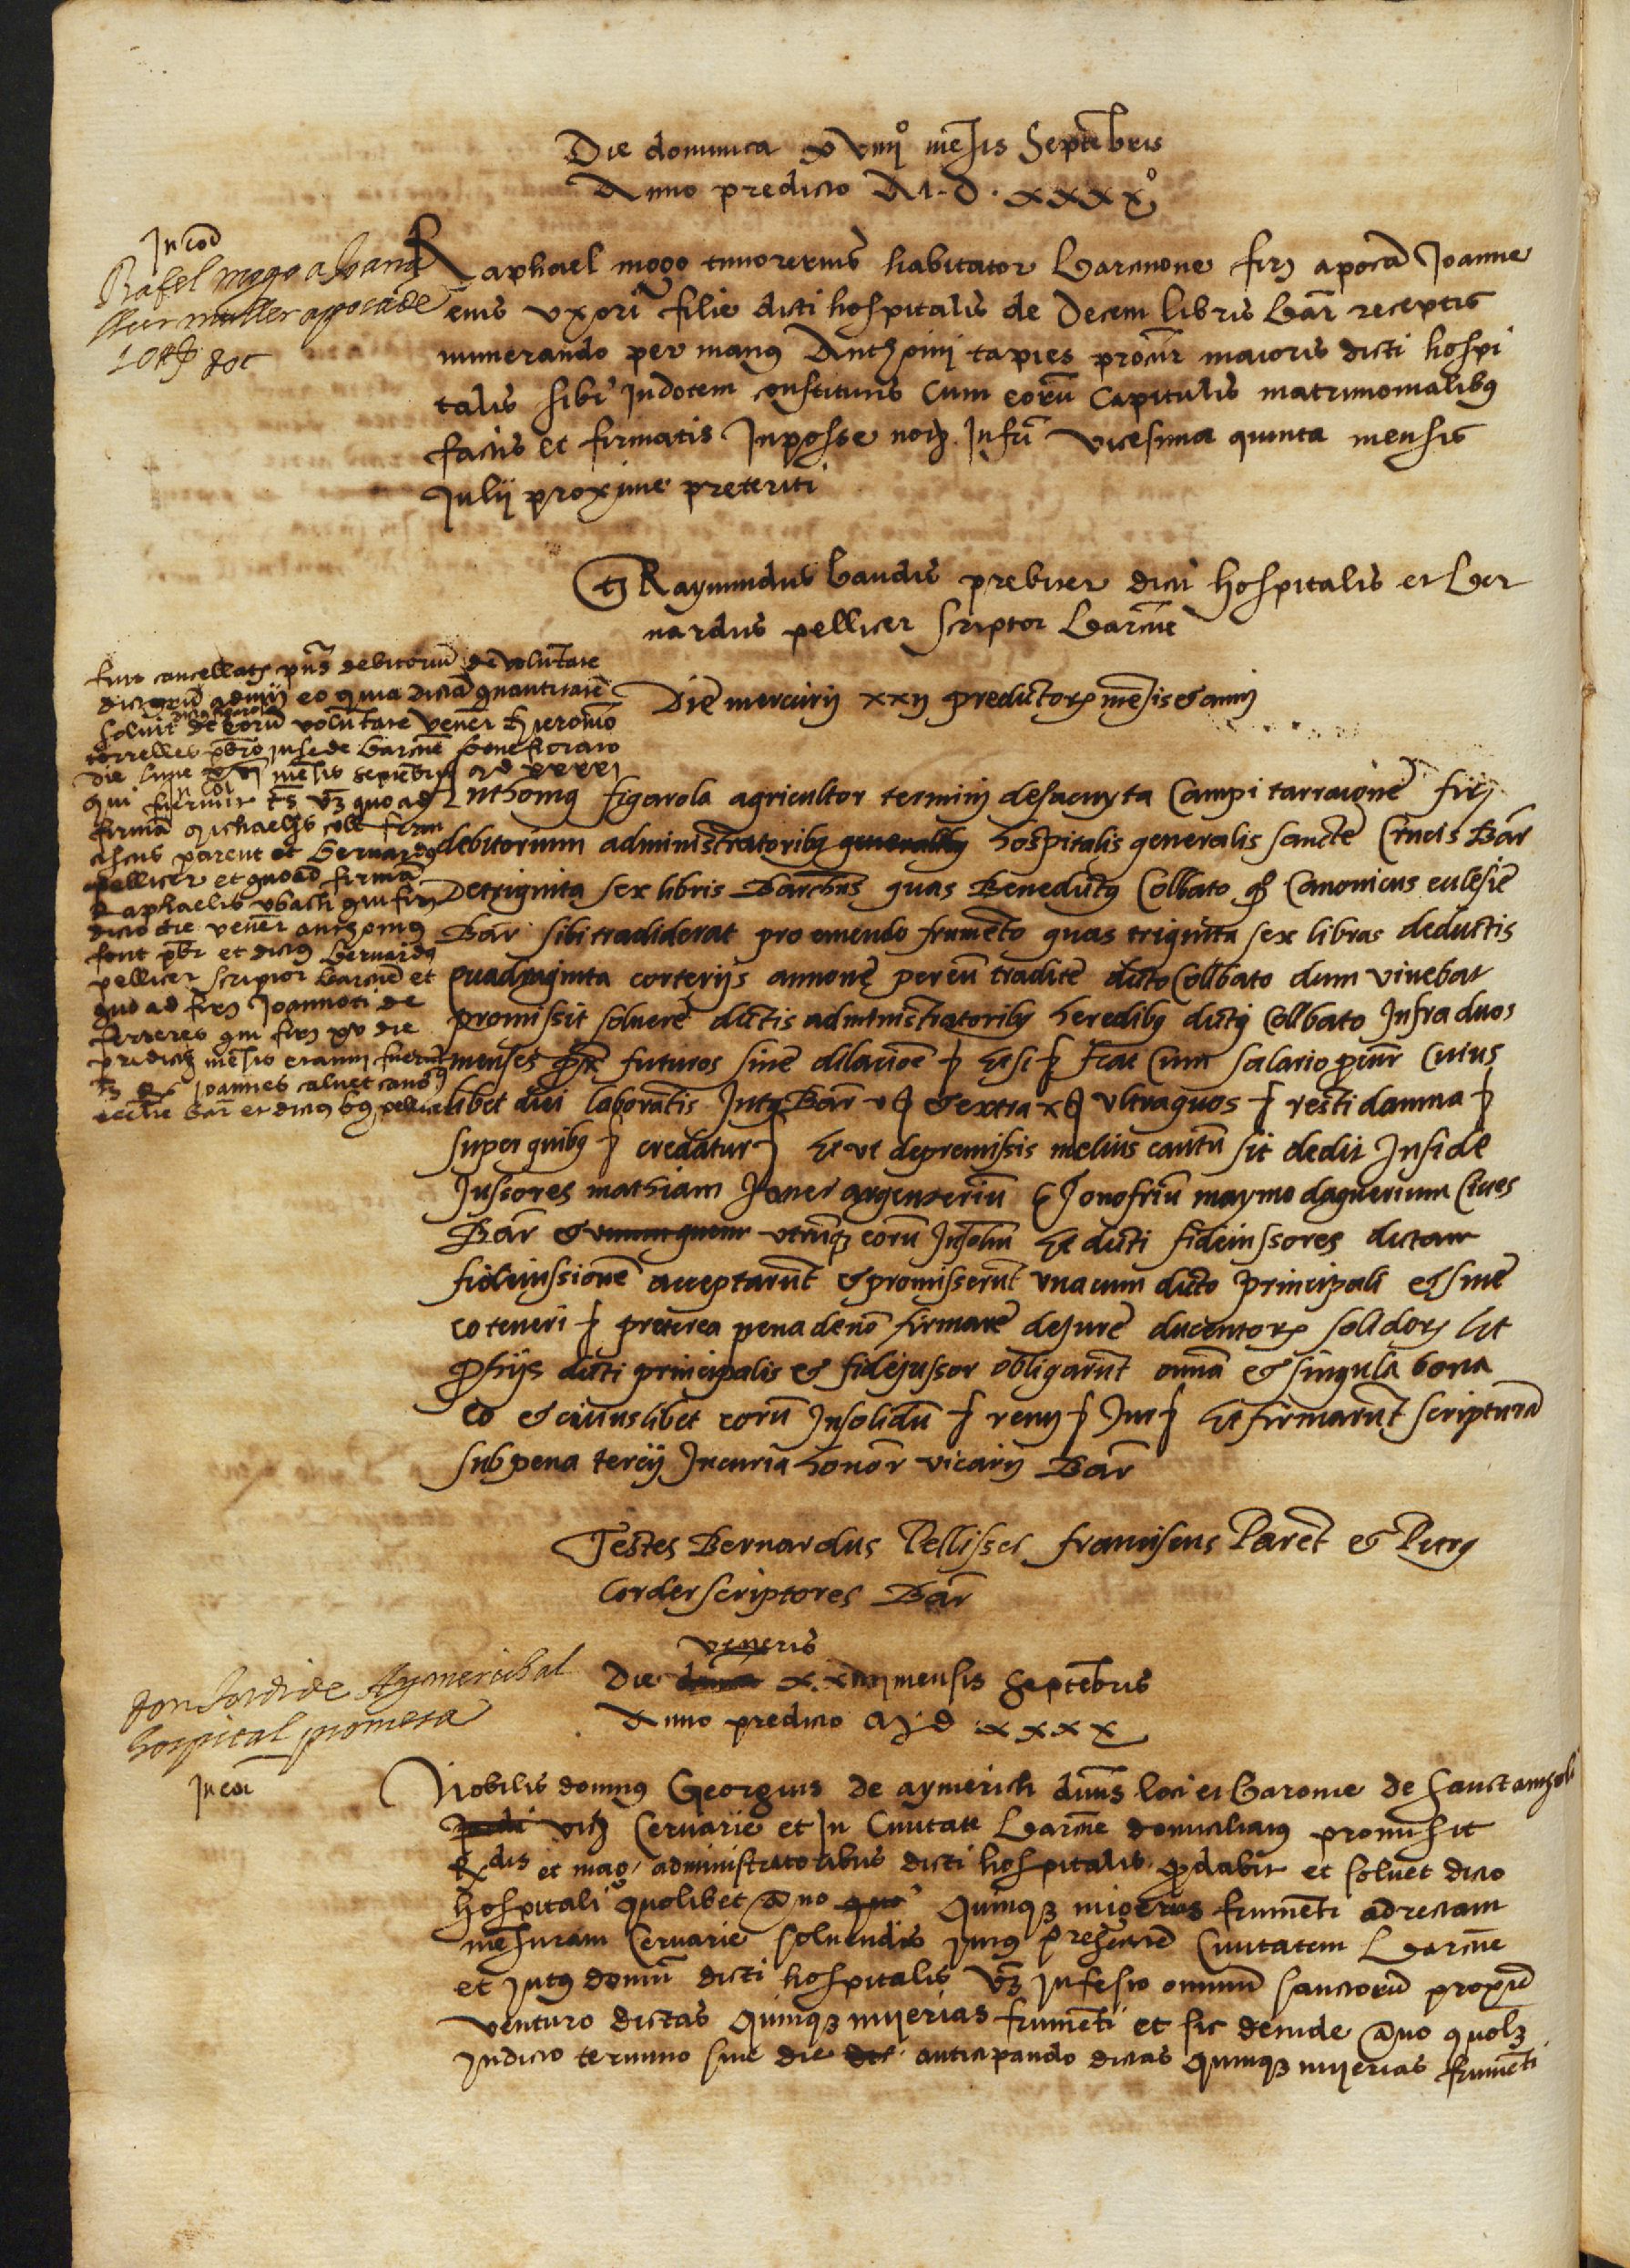 Die dominica xviiijº mēsis Septēbris
Anno predicto M.D.xxxxº
In cōi
Rafel mogo a Joana
sa muller apoca de
10 ℔ dot
Raphael mogo habitator barcinone firȝ apocā Joanne
eius uxori filie dicti hospitalis de decem libris bar̄ receptis
numerando per manꝰ Anthonij tapies procūr maioris dicti hospi
talis sibi in dotem constitutis cum eorū capitulis matrimonialibꝰ
factis et firmatis in posse notȝ infrī vicesima quinta mensis
Julij proxime preteriti
Tȝ Raymundus baudis prebiter dicti hospitalis et ber
nardus pellicer scriptor barcīne
Die mercurij xxij predictorȝ mēsis & anni
fuit cancellatȝ pn̄s debitoriū de volūtate
dictorū admīj eo quia dictā quantitatē
soluit de eorū volūtate vener̄ hieronimo
torrelles pbr̄o in sede barcīne beneficiato
die lune mēsis septēbris M D xxxxj
qui fuerunt t̄s vȝ quo ad
firmā michaelis coll
parent et bernardꝰ
pellicer et quoad firmā
Raphaelis vbach qui firȝ
dicto die vener̄ anthonius
font pbr̄ et dictꝰ bernardꝰ
pellicer scriptor barcīne et
quo ad firȝ Joannoti de
ferreres qui firȝ die
predictȝ mēsis et anni fuerūt
tȝ Joannes caluet canoꝰ
ecclīe bar̄ et dictꝰ bꝰ pellicer
In cōi
Anthonꝰ figarola agricultor terminj de la Campi tarracone firȝ
debitorium administratoribꝰ generalibꝰ hospitalis generalis sancte Crucis Bar̄
De triginta sex libris Barchn̄s quas Benedictꝰ Collbato qō Canonicus eclesie
Bar̄ sibi tradiderat pro emendo frumēto quas triginta sex libras deductis
quadraginta corterijs annone per eū tradite dicto Collbato dum viuebat
promissit soluere dictis administratoribꝰ heredibꝰ dicti Collbato Infra duos
menses px̄ futuros sine dilacione ƚ Et si ƚ Fiat cum salario pcūr Cuius
libet diei laborantis Intꝰ Bar̄ v ß & extra x ß vltra quos ƚ resti damna ƚ
super quibꝰ ƚ credatur ƚ Et vt de premissis melius cautū sit dedit In fide
Jussores mathiam Janer argenterium & Jonofriū maymo daguerium Ciues
Bar̄ & vnumquem vtrūqȝ eorū Insolidū Et dicti fideiussores dictam
fideiussione acceptarunt & promisserūt vna cum dicto principali & sine
eo teneri ƚ preterea pena de nō firmare de Jure ducentorȝ solidorȝ Et
ꝓ hijs dicti principalis & fidejussor obligarūt omnia & singula bona
eo & cuiuslibet eorū Insolidū ƚ renȝ ƚ Jur ƚ Et firmarūt scripturā
sub pena tercij In curia honor̄ vicarij Bar̄
Testes Bernardus Pellisser franciscus Parēt & Petrꝰ
Corder scriptores Bar̄
veneris
Die mensis Septēbris
Anno predicto M.D.xxxx
don Jordi de Aymerich al
hospital promesa
In cōi
Nobilis domnꝰ Georgius de aymerich dn̄us loci et baronie de
vicȝ Ceruarie et In Ciuitate barcīne domiciliatꝰ promisit
Rdis et mag. administratoribus dicti hospitalis ꝙ dabit et soluet dicto
hospitali quolibet āno quinqȝ migerias frumēti ad rectam
mēsuram Ceruarie soluendas intꝰ presentē Ciuitatem barcīne
et intꝰ domū dicti hospitalis vȝ in festo omniū sanctorū proxīe
venturo dictas quinqȝ mijerias frumēti et sic deinde āno quolȝ
In dicto termino siue die anticipando dictas quinqȝ mijerias frumēti